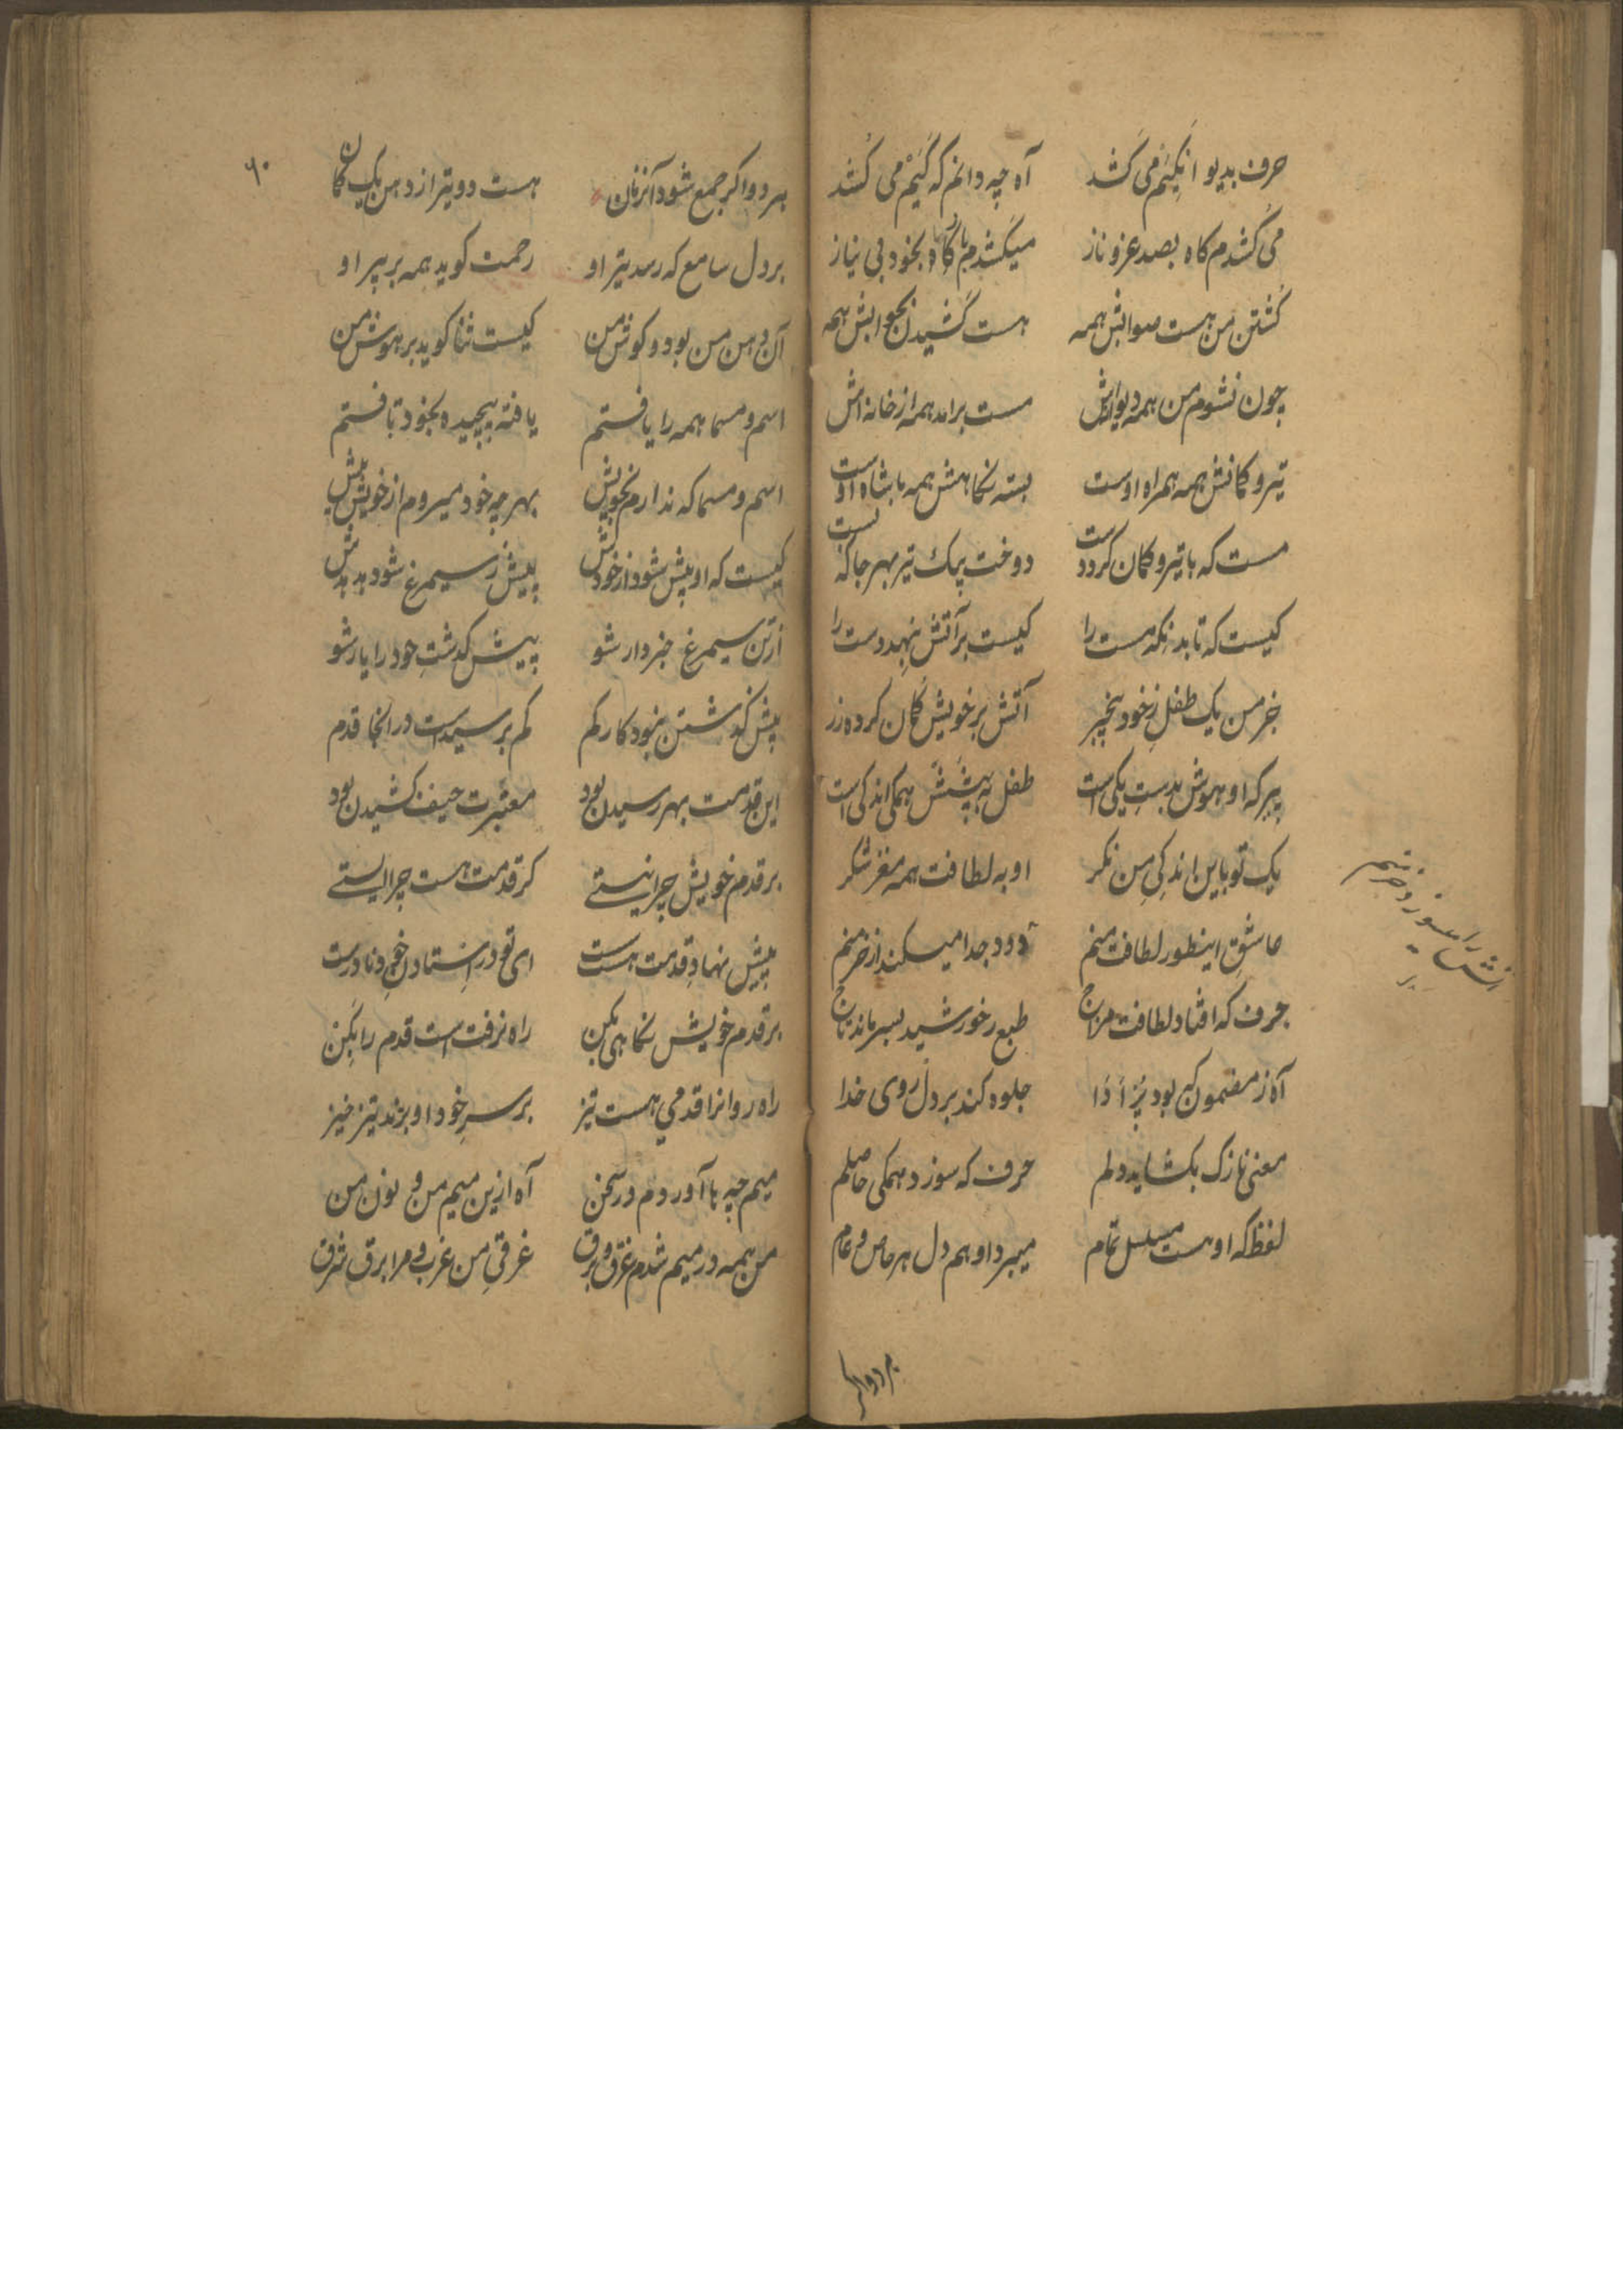 حرف بدیو انکیم می کشد آه چه دانم که کیم می کشد
می کشدم کاه بصد عز و ناز میکشدم باز کاه بخود بی نیاز
کشتن من هست صوابش همه هست کشیدن بجوابش همه
چون نشوم من همه دیوانه‌اش مست برامد همه از خانه‌اش
تیر و کمانش همه همراه اوست بسته نکاهش همه با شاه اوست
مست که با تیر و کمان کردد ست دوخت بیک تیر بهر جا که
کیست که تابد نکه مست را کیست بر آتش بنهد دست را
جز من یک طفل ز خود بیخبر آتش بر خویش کمان کرده زر
پیر که او هوش بدست یکی است طفل به پشتش همکی اندکی است
یک تو باین اندکی من نکر او به لطافت همه مغز شکر
عاشق اینطور لطافت منم دود جدا میکند از خرمنم
حرف که افتاد لطافت مزاج طبع ز خورشید بسر ماند تاج
آه ز مضمون که بود پر ادا جلوه کند بر دل روی خدا
معنی نازک بکشاید دلم حرف که سوزد همکی حاصلم
لفظ که او هست مسلسل تمام میبرد او هم دل هر خاص و عام
آتش را میسوزد خرمنم
هر دو اکر
۶۰
هر دو اکر جمع شود آنزمان هست دو تیر از دهن یک کمان
بر دل سامع که رسد تیر او رحمت کوید همه بر پیر او
آن دهن من بود و کوش من کیست ثنا کوید بر هوش من
اسم و مسما همه را یافتم یافته پیچیده بخود تافتم
اسم و مسما که ندارم بخویش بهر چه خود میروم از خویش پیش
کیست که او پیش شود از خودش پیش ز سیمرغ شود هدهدش
ازتن سیمرغ خبردار شو پیش کذشت خود را یار شو
پیش کذشتن نبود کار کم کم برسیدست در آنجا قدم
این قدمت بهر رسیدن بود معتبرت حیف کشیدن بود
بر قدم خویش چرا نیستے کر قدمت هست چرا ایستے
پیش نهاد قدمت هست ای تو در استادن خود نادرست
بر قدم خویش نکاهی بکن راه نرفت است قدم را بکن
راه روانرا قدمی هست تیز بر سر خود او بزند تیز خیز
میم چه با آوردم در سخن آه ازین میم من و نون من
من همه در میم شدم غرق و برق غرق من غرب و مرا برق شرق